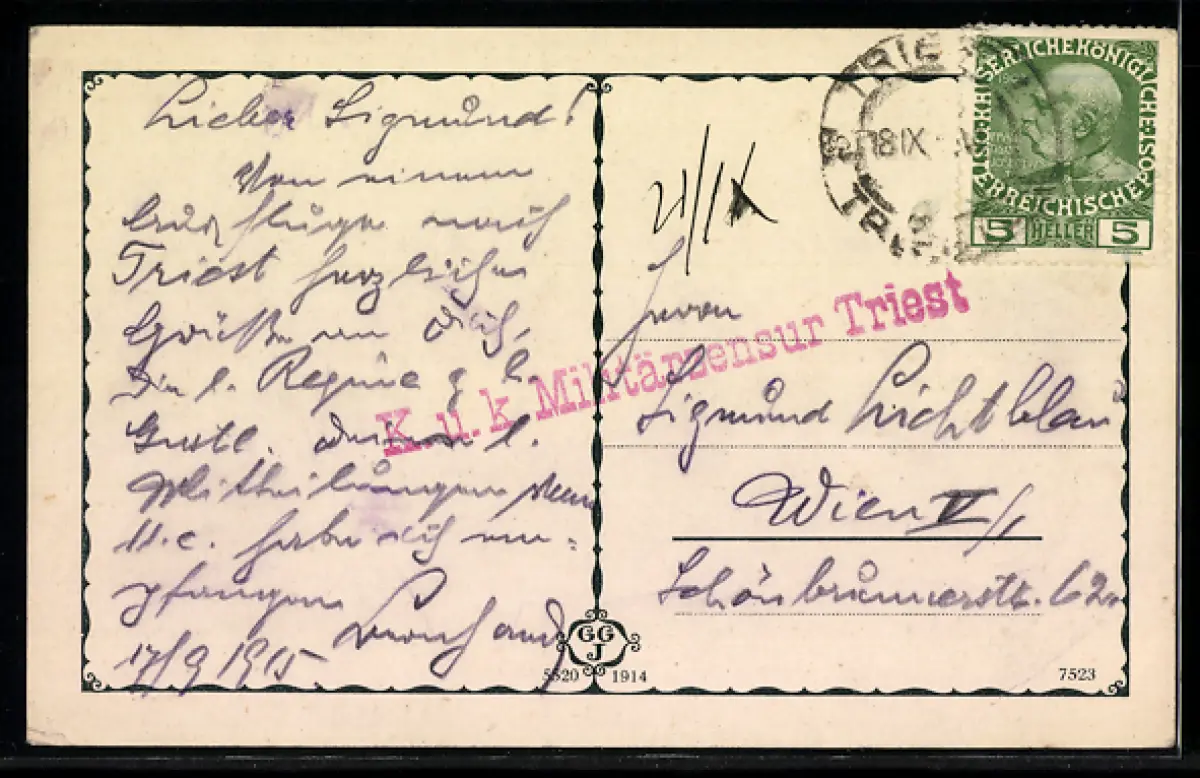 Lieber Sigmund!
Von einem
Ausfluge nach
Triest herzlichen
Grüße an Dich,
l. Regine & l.
Gustl. l.
Mittheilungen vom
11.c. habe ich em=
pfangen
17/9 1915
GGJ
5520 1914
21/IX
Herrn
Sigmund Lichtblau
Wien V/1
Schönbrunnerstr. 62
7523
K.u.k. Militärzensur Triest
TRIEST
18 IX
KAISERLICHEKÖNIGLICHE ÖSTERREICHISCHE POST
5 HELLER 5